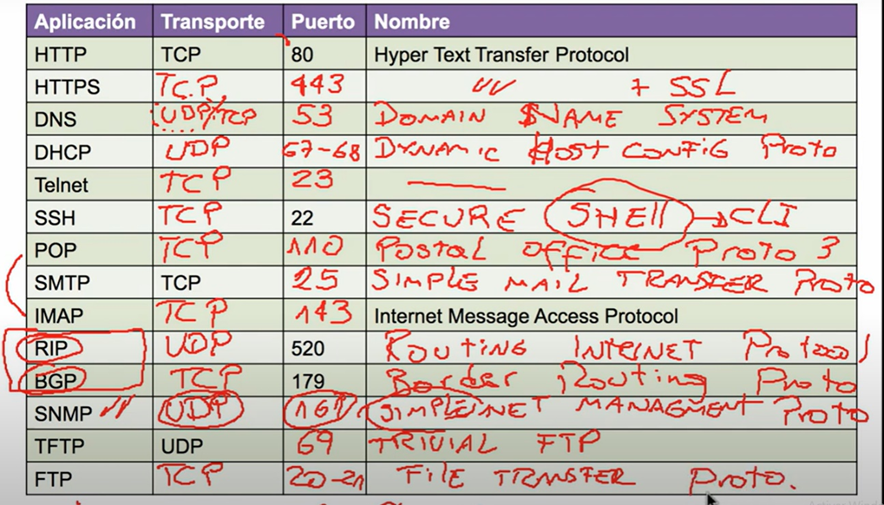 Aplicación Transporte Puerto Nombre
HTTP TCP 80 Hyper Text Transfer Protocol
HTTPS TCP 443 " + SSL
DNS UDP/TCP 53 DOMAIN NAME SYSTEM
DHCP UDP 67-68 DYNAMIC HOST CONFIG Proto
Telnet TCP 23 —
SSH TCP 22 SECURE SHEll → CLI
POP TCP 110 Postal office Proto 3
SMTP TCP 25 SIMPLE MAIL TRANSFER Proto
IMAP TCP 143 Internet Message Access Protocol
RIP UDP 520 ROUTING INTERNET Protocol
BGP TCP 179 Border Routing Proto
SNMP UDP 161 SIMPLE NET MANAGMENT Proto
TFTP UDP 69 TRIVIAL FTP
FTP TCP 20-21 FilE TRANSFER Proto.